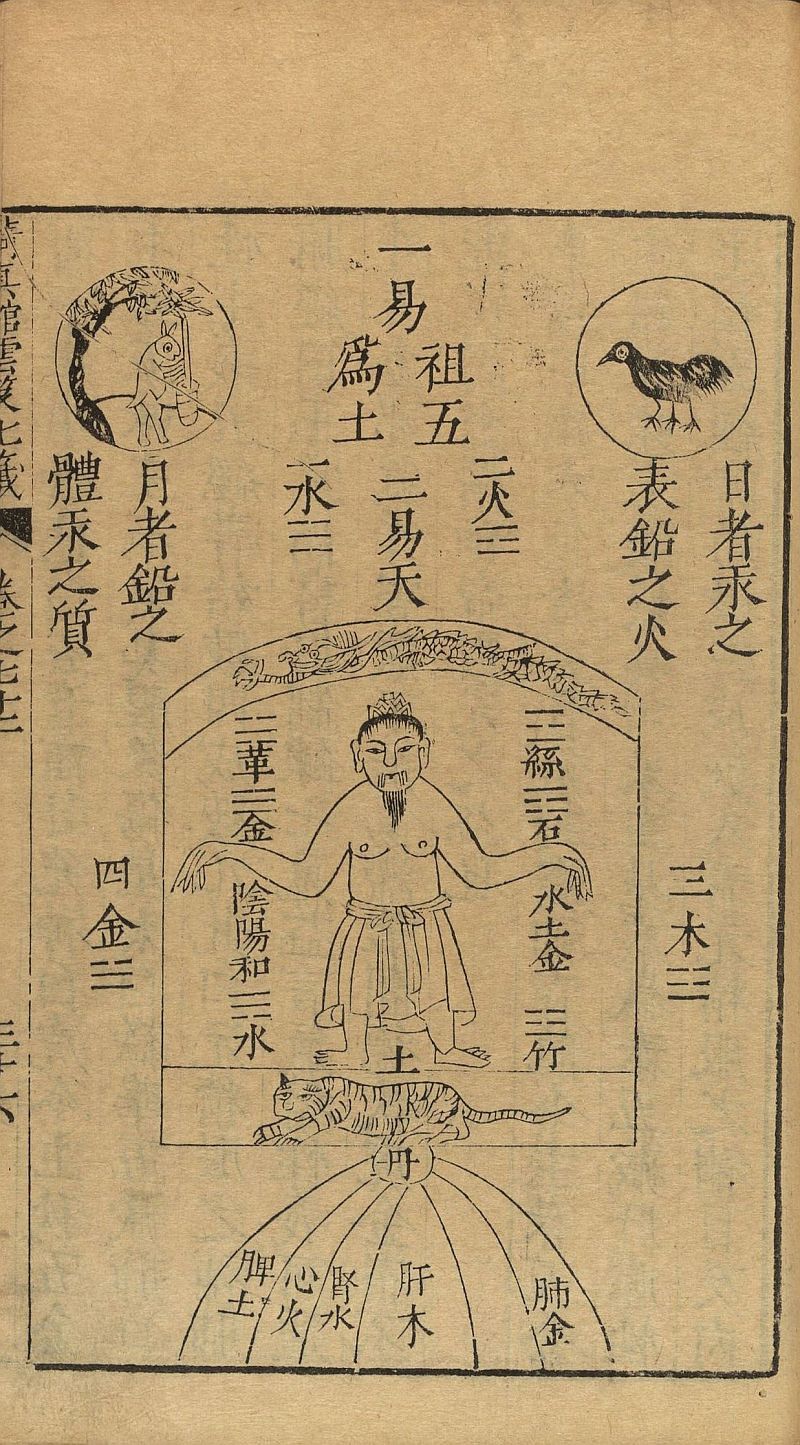 日者汞之
表鉛之火
一易
祖五
爲土
二火
二易天
一水
月者鉛之
體汞之質
三木
絲
石
水土金
竹
土
革
金
陰陽和
水
四金
丹
肺金
肝木
腎水
心火
脾土
真館雲笈七籤
卷之七十二